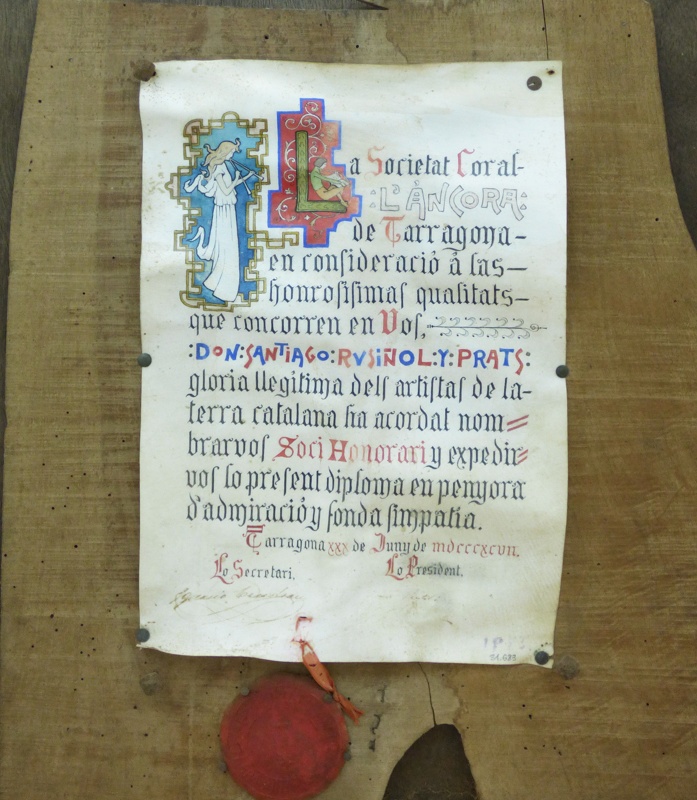 La Societat Coral-
:L'ÀNCORA:
de Tarragona-
en consideració á las-
honrosisimas qualitats-
que concorren en Vos,
:DON:SANTIAGO:RVSIÑOL:Y:PRATS:
gloria llegitima dels artistas de la-
terra catalana ha acordat nom=
brarvos Soci Honorari y expedir=
vos lo present diploma en penyora
d'admiració y fonda simpatia.
Tarragona xxx de Juny de mdcccxcvii.
Lo Secretari. Lo President.